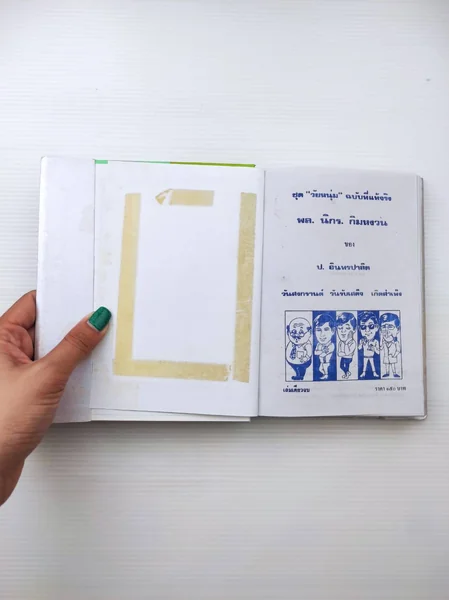 ชุด "วัยหนุ่ม" ฉบับที่แท้จริง
พล. นิกร. กิมหงวน
ของ
ป. อินทรปาลิต
วันสงกรานต์ วันรับเสด็จ
เล่มเดียวจบ
ราคา บาท